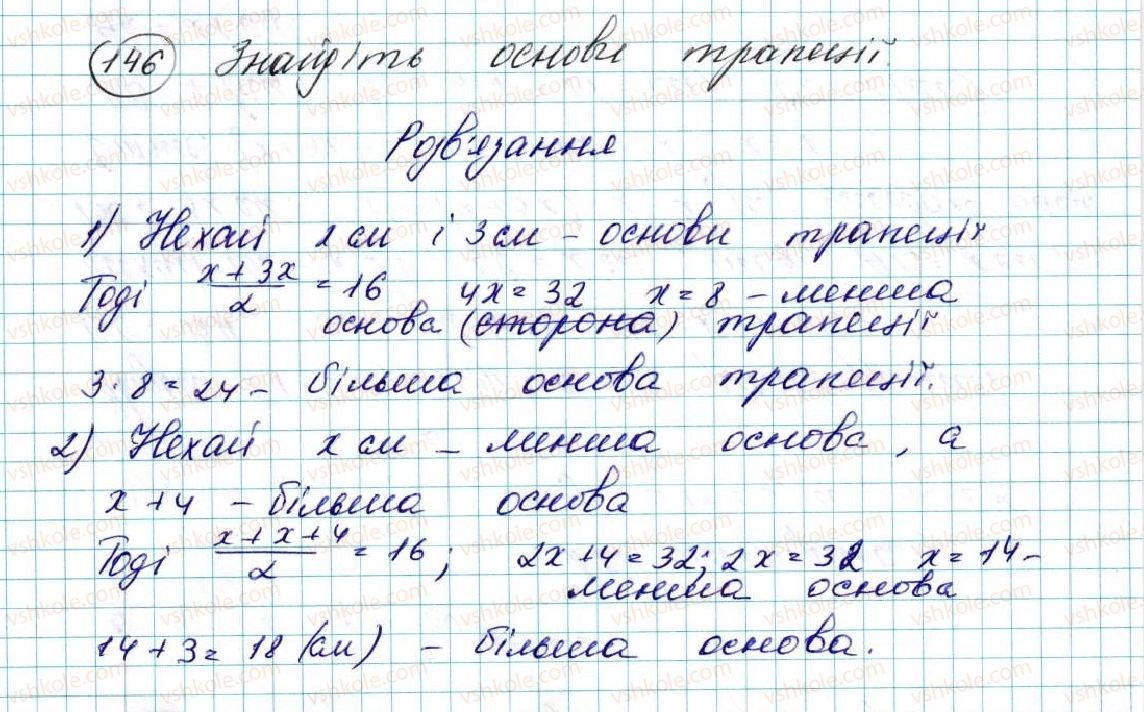 146 Знайдіть основи трапеції.
Розв'язання
1) Нехай x см і 3 см – основи трапеції
Тоді (x + 3x)/2 = 16 4x = 32 x = 8 – менша
основа (сторона) трапеції
3 · 8 = 24 – більша основа трапеції.
2) Нехай x см – менша основа, а
x + 4 – більша основа
Тоді (x + x + 4)/2 = 16; 2x + 4 = 32; 2x = 32 x = 14 –
менша основа
14 + 3 = 18 (см) – більша основа.